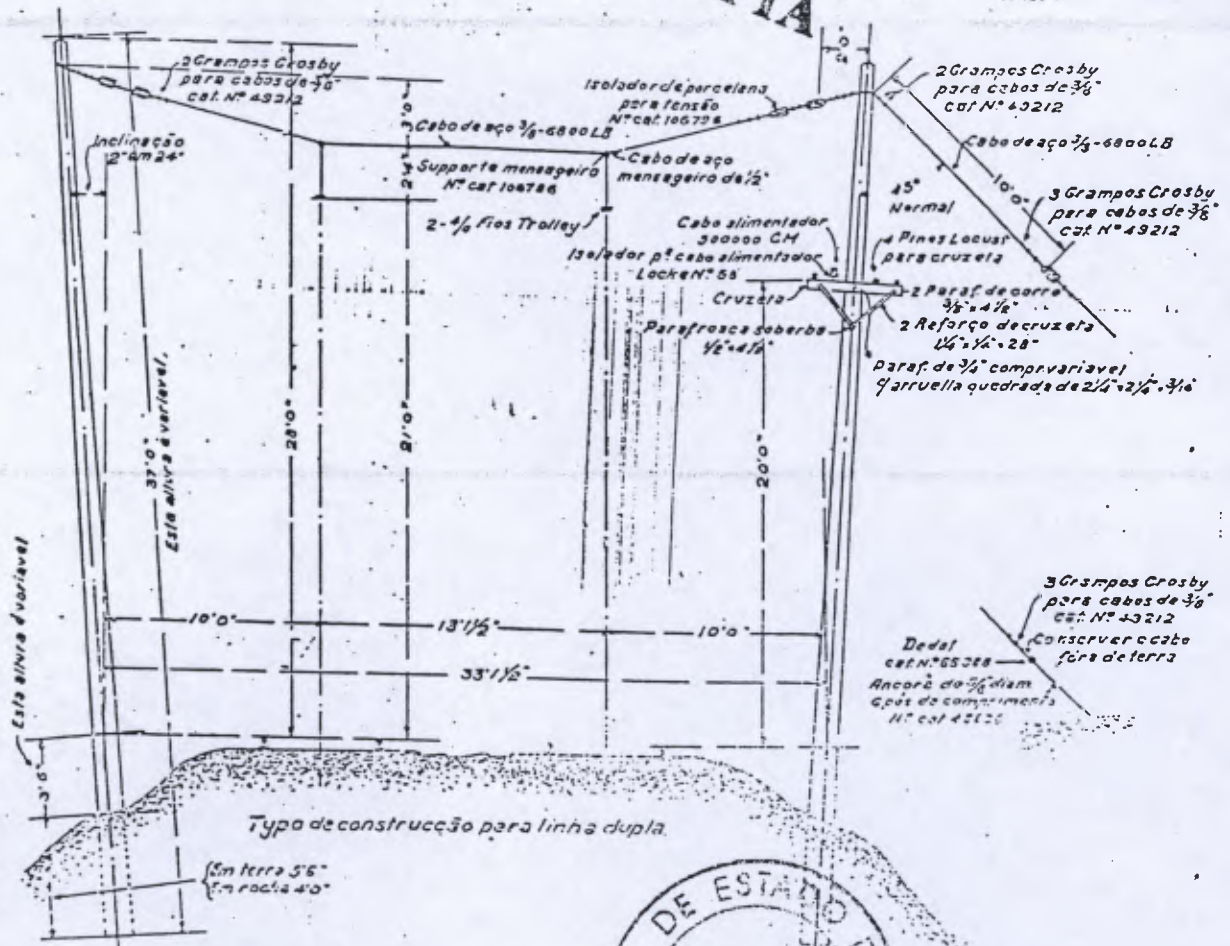 2 Grampos Crosby
para cabos de 3/8"
cat. Nº 49212
Inclinação
2" em 24"
Isolador de porcelana
para tensão
Nº cat. 106796
Cabo de aço 3/8-6800 LB
Supporte mensageiro
Nº cat 106786
Cabo de aço
mensageiro de 1/2"
2-4/0 Fios Trolley
2 Grampos Crosby
para cabos de 3/8"
cat Nº 49212
Cabo de aço 3/8-6800 LB
10'0"
45°
Normal
3 Grampos Crosby
para cabos de 3/8"
cat Nº 49212
Cabo alimentador
300000 CM
Isolador pª cabo alimentador
Locke Nº
Cruzeta
4 Pinos Locust
para cruzeta
2 Paraf. de carro
3/8"×4 1/2"
Paraf rosca soberba
1/2"×4 1/2"
2 Reforço de cruzeta
1 1/4"×1/4"×28"
Paraf. de 3/4" compr. variavel
c/ arruella quadrada de 2 1/4"×2 1/4"×3/16"
37'0"
Esta altura é variavel.
28'0"
21'0"
20'0"
Esta altura é variavel
3'6"
10'0"
13'1 1/2"
10'0"
33'1 1/2"
3 Grampos Crosby
para cabos de 3/8"
cat. Nº 49212
Conservar o cabo
fóra de terra
Dedal
cat. Nº
Ancora de 5/8 diam
6 pés de comprimento
Nº cat
Typo de construcção para linha dupla.
Em terra 5'6"
Em rocha 4'0"
DE ESTADO